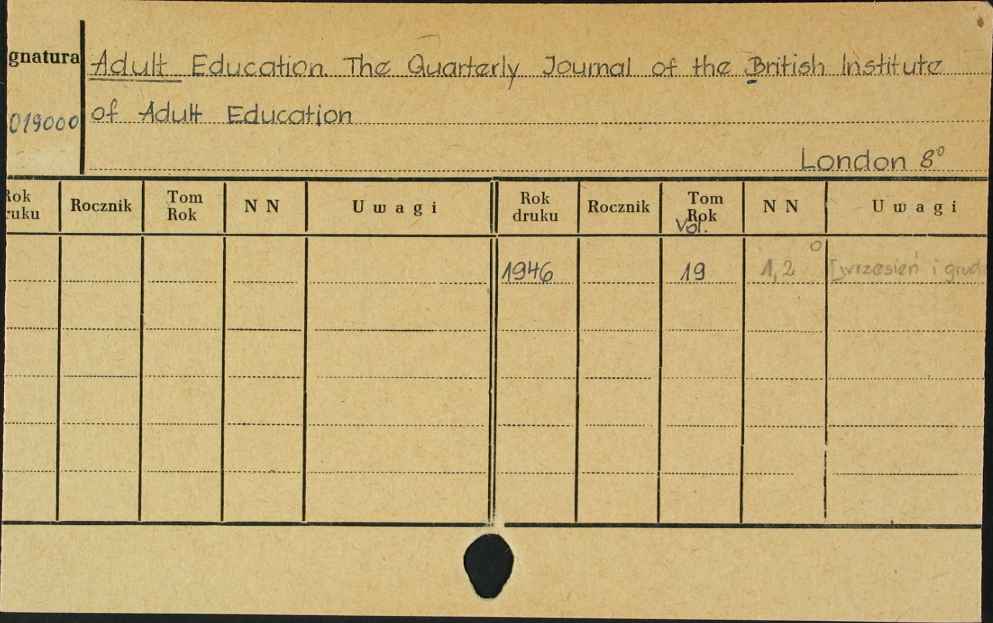 gnatura Adult Education. The Quarterly Journal of the British Institute
019000 of Adult Education
London 8°
Rok druku Rocznik Tom Rok N N Uwagi Rok druku Rocznik Tom Rok Vol. N N Uwagi
1946 19 1,2 [wrzesień i grud